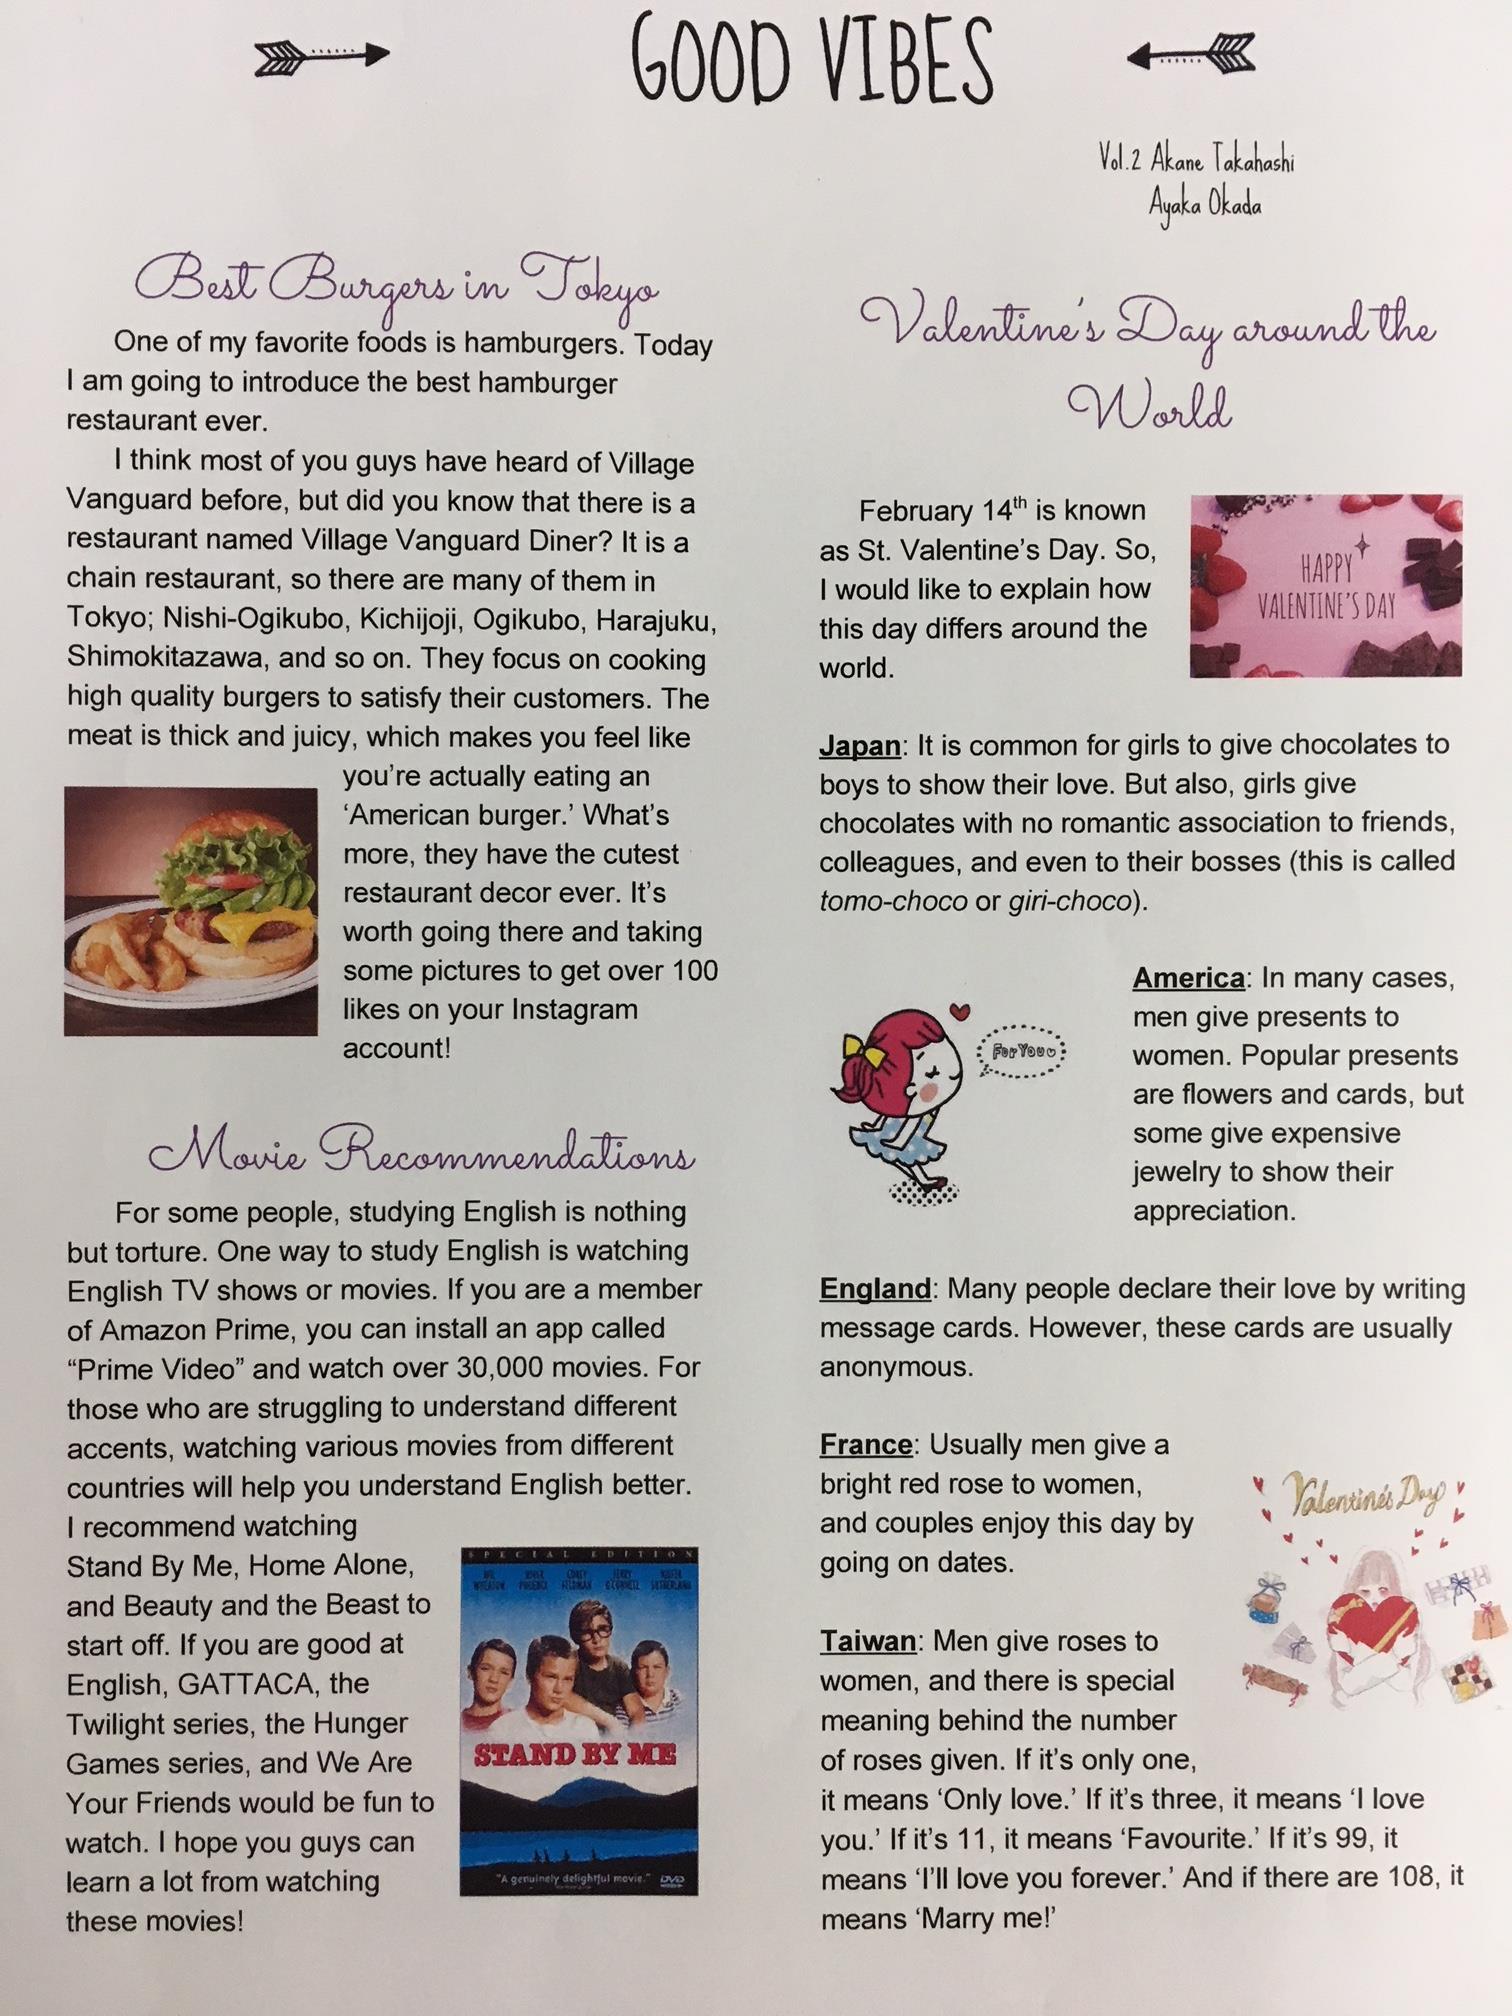 GOOD VIBES
Vol.2 Akane Takahashi
Ayaka Okada
Best Burgers in Tokyo
One of my favorite foods is hamburgers. Today
I am going to introduce the best hamburger
restaurant ever.
I think most of you guys have heard of Village
Vanguard before, but did you know that there is a
restaurant named Village Vanguard Diner? It is a
chain restaurant, so there are many of them in
Tokyo; Nishi-Ogikubo, Kichijoji, Ogikubo, Harajuku,
Shimokitazawa, and so on. They focus on cooking
high quality burgers to satisfy their customers. The
meat is thick and juicy, which makes you feel like
you're actually eating an
'American burger.' What's
more, they have the cutest
restaurant decor ever. It's
worth going there and taking
some pictures to get over 100
likes on your Instagram
account!
Movie Recommendations
For some people, studying English is nothing
but torture. One way to study English is watching
English TV shows or movies. If you are a member
of Amazon Prime, you can install an app called
“Prime Video” and watch over 30,000 movies. For
those who are struggling to understand different
accents, watching various movies from different
countries will help you understand English better.
I recommend watching
Stand By Me, Home Alone,
and Beauty and the Beast to
start off. If you are good at
English, GATTACA, the
Twilight series, the Hunger
Games series, and We Are
Your Friends would be fun to
watch. I hope you guys can
learn a lot from watching
these movies!
SPECIAL EDITION
WIL RIVER COREY JERRY KIEFER
WHEATON PHOENIX FELDMAN O'CONNELL SUTHERLAND
STAND BY ME
"A genuinely delightful movie."
DVD
Valentine's Day around the
World
February 14th is known
as St. Valentine's Day. So,
I would like to explain how
this day differs around the
world.
HAPPY
VALENTINE'S DAY
Japan: It is common for girls to give chocolates to
boys to show their love. But also, girls give
chocolates with no romantic association to friends,
colleagues, and even to their bosses (this is called
tomo-choco or giri-choco).
For You
America: In many cases,
men give presents to
women. Popular presents
are flowers and cards, but
some give expensive
jewelry to show their
appreciation.
England: Many people declare their love by writing
message cards. However, these cards are usually
anonymous.
France: Usually men give a
bright red rose to women,
and couples enjoy this day by
going on dates.
Valentine's Day
Taiwan: Men give roses to
women, and there is special
meaning behind the number
of roses given. If it's only one,
it means 'Only love.' If it's three, it means 'I love
you.' If it's 11, it means 'Favourite.' If it's 99, it
means 'I'll love you forever.' And if there are 108, it
means 'Marry me!'